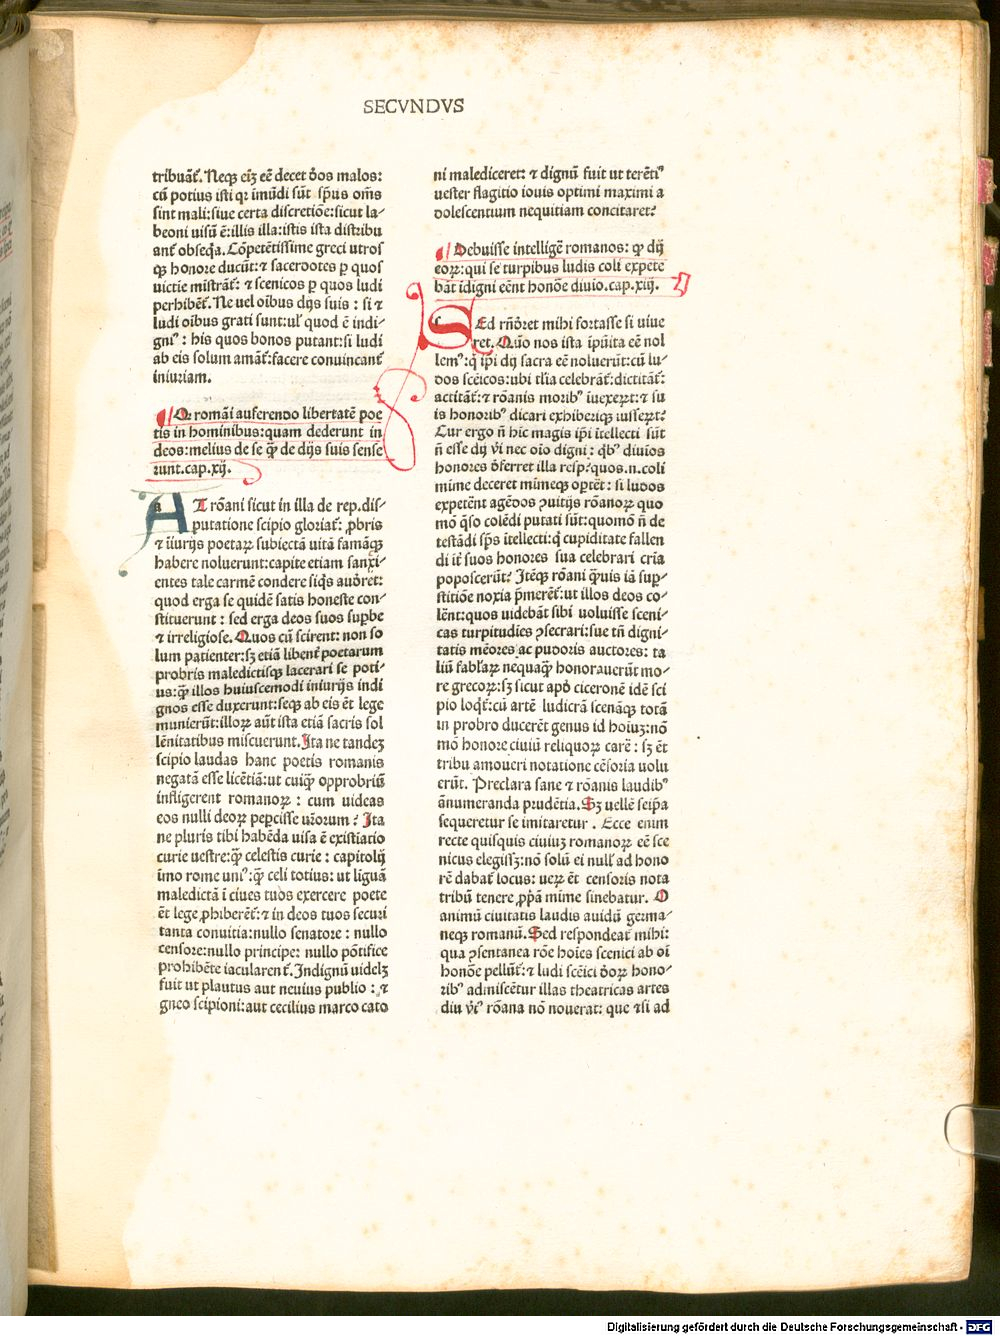 SECVNDVS
tribuāt̄. Neqꝫ eiꝫ eē decet ðos malos:
cū potius isti qꝛ imūdi sūt sp̄us om̄s
sint mali: siue certa discretiōe: sicut la-
beoni uisū ē: illis illa: istis ista distribu
ant̄ obseq̄a. Cōpetētissime greci utros
qꝫ honore ducūt: ⁊ sacerdotes ꝑ quos
uictie mistrāt̄: ⁊ scenicos ꝑ quos ludi
perhibēt̄. Ne uel oībus dijs suis : si ⁊
ludi oībus grati sunt: ul' quod ē indi-
gniꝰ : his quos bonos putant: si ludi
ab eis solum amāt̄: facere conuincant̄
iniuriam.
Qꝙ romāi auferendo libertatē poe
tis in hominibus: quam dederunt in
deos: melius de se qꝫ̄ de dijs suis sense
runt. cap. xij.
a AT rōani sicut in illa de rep. dis-
putatione scipio gloriat̄: ꝓbris
⁊ īiurijs poetaꝝ subiectā uitā famāqꝫ
habere noluerunt: capite etiam sanxi-
entes tale carmē condere siq̄s auðret:
quod erga se quidē satis honeste con-
stituerunt : sed erga deos suos suꝑbe
⁊ irreligiose. Quos cū scirent: non so
lum patienter: sꝫ etiā libent̄ poetarum
probris maledictisqꝫ lacerari se poti-
us: qꝫ̄ illos huiuscemodi iniurijs indi
gnos esse duxerunt: seqꝫ ab eis ēt lege
munierūt: illoꝝ aūt ista etiā sacris sol
lēnitatibus miscuerunt. Ita ne tandeꝫ
scipio laudas hanc poetis romanis
negatā esse licētiā: ut cuiqꝫ̄ opprobriū
infligerent romanoꝝ : cum uideas
eos nulli deoꝝ peꝑcisse ur̄orum? Ita
ne pluris tibi habēda uisa ē existiatio
curie uestre: qꝫ̄ celestis curie : capitolij
ūmo rome uniꝰ: qꝫ̄ celi totius: ut liguā
maledictā ī ciues tuos exercere poete
ēt lege ꝓhiberēt̄: ⁊ in deos tuos securi
tanta conuitia: nullo senatore : nullo
censore: nullo principe: nullo pōtifice
prohibēte iacularent̄. Indignū uidelꝫ
fuit ut plautus aut neuius publio : ⁊
gneo scipioni: aut cecilius marco cato
ni malediceret: ⁊ dignū fuit ut terētiꝰ
uester flagitio iouis optimi maximi a
dolescentium nequitiam concitaret?
Debuisse intelligē romanos: qꝙ dij
eoꝝ: qui se turpibus ludis coli expete
bāt īdigni eēnt honōe diuio. cap. xiij.
s SEd rn̄ðret mihi fortasse si uiue
ret. Quō nos ista īpūita eē nol
lemꝰ: q̄ ip̄i dij sacra eē noluerūt: cū lu-
dos scēicos: ubi tl̄ia celebrāt̄: dictitāt̄:
actitāt̄: ⁊ rōanis moribꝰ īuexeꝝt: ⁊ su
is honoribꝰ dicari exhiberiqꝫ iusseꝝt?
Cur ergo n̄ hīc magis ip̄i ītellecti sūt
n̄ esse dij ūi nec oīo digni : qb̄ꝰ diuios
honores ðferret illa resp? quos. n. coli
mime deceret mimeqꝫ oꝑtēt : si ludos
expetēnt agēdos ꝯuitijs rōanoꝝ quo
mō q̄so colēdi putati sūt: quomō n̄ de
testādi sp̄s ītellecti: q̄ cupiditate fallen
di īt̄ suos honores sua celebrari crīa
poposcerūt? Itēqꝫ rōani qꝫ̄uis iā suꝑ-
stitiōe noxia p̄merēt̄: ut illos deos co-
lēnt: quos uidebāt sibi uoluisse sceni-
cas turpitudies ꝯsecrari: sue tn̄ digni-
tatis mēores ac pudoris auctores: ta
liū fabl̄aꝝ nequaqꝫ̄ honorauerūt mo-
re grecoꝝ: sꝫ sicut apð ciceronē idē sci
pio loqt̄: cū artē ludicrā scenāqꝫ totā
in probro ducerēt genus id hoiuꝫ: nō
mō honore ciuiū reliquoꝝ carē : sꝫ ēt
tribu amoueri notatione cēsoria uolu
erūt. Preclara sane ⁊ rōanis laudibꝰ
ānumeranda prudētia. Sꝫ uellē seip̄a
sequeretur se imitaretur . Ecce enim
recte quisquis ciuiuꝫ romanoꝝ eē sce
nicus elegissꝫ: nō solū ei null' ad hono
rē dabat̄ locus: ueꝝ ēt censoris nota
tribū tenere ꝓpā mime sinebatur. O
animū ciuitatis laudis auidū germa-
neqꝫ romanū. Sed respondeat̄ mihi:
qua ꝯsentanea rōe hoīes scenici ab oī
honōe pellūt̄: ⁊ ludi scēici ðoꝝ hono-
ribꝰ admiscētur illas theatricas artes
diu v̄tꝰ rōana nō nouerat: que ⁊si ad
Digitalisierung gefördert durch die Deutsche Forschungsgemeinschaft - DFG